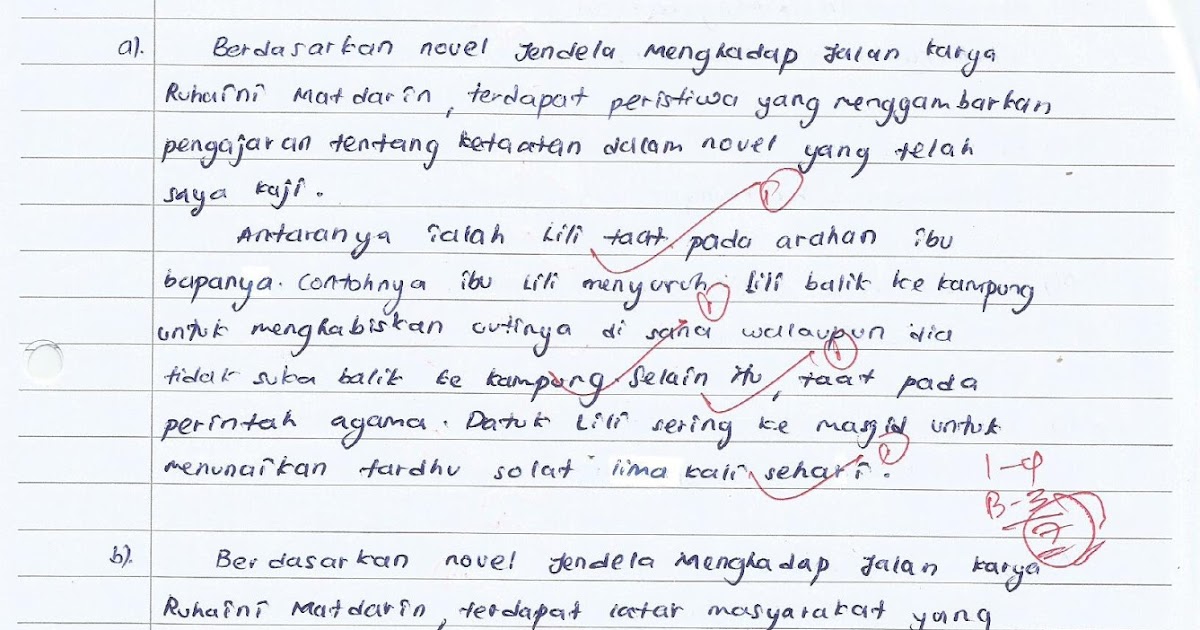 a). Berdasarkan novel Jendela Menghadap Jalan karya
Ruhaini Matdarin, terdapat peristiwa yang menggambarkan
pengajaran tentang ketaatan dalam novel yang telah
saya kaji.
Antaranya ialah Lili taat pada arahan ibu
bapanya. Contohnya ibu Lili menyuruh Lili balik ke kampung
untuk menghabiskan cutinya di sana walaupun dia
tidak suka balik ke kampung. Selain itu, taat pada
perintah agama. Datuk Lili sering ke masjid untuk
menunaikan fardhu solat lima kali sehari.
b). Berdasarkan novel Jendela Menghadap Jalan karya
Ruhaini Matdarin, terdapat latar masyarakat yang